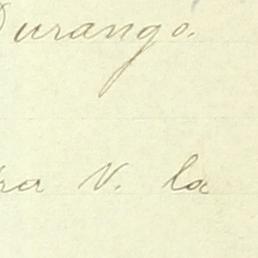 Durango.
ra V. la